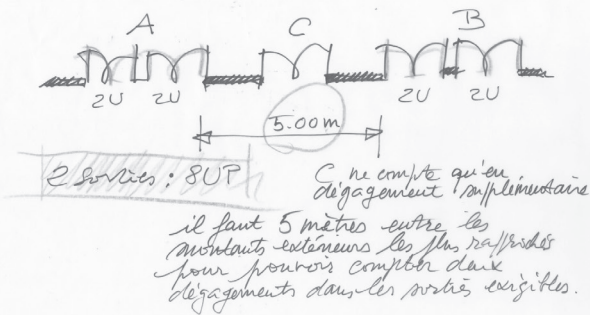 A C B
2U 2U 2U 2U
5.00m
2 sorties : 8UP
C ne compte qu'en
dégagement supplémentaire
il faut 5 mètres entre les
montants extérieurs les plus rapprochés
pour pouvoir compter deux
dégagements dans les sorties exigibles.